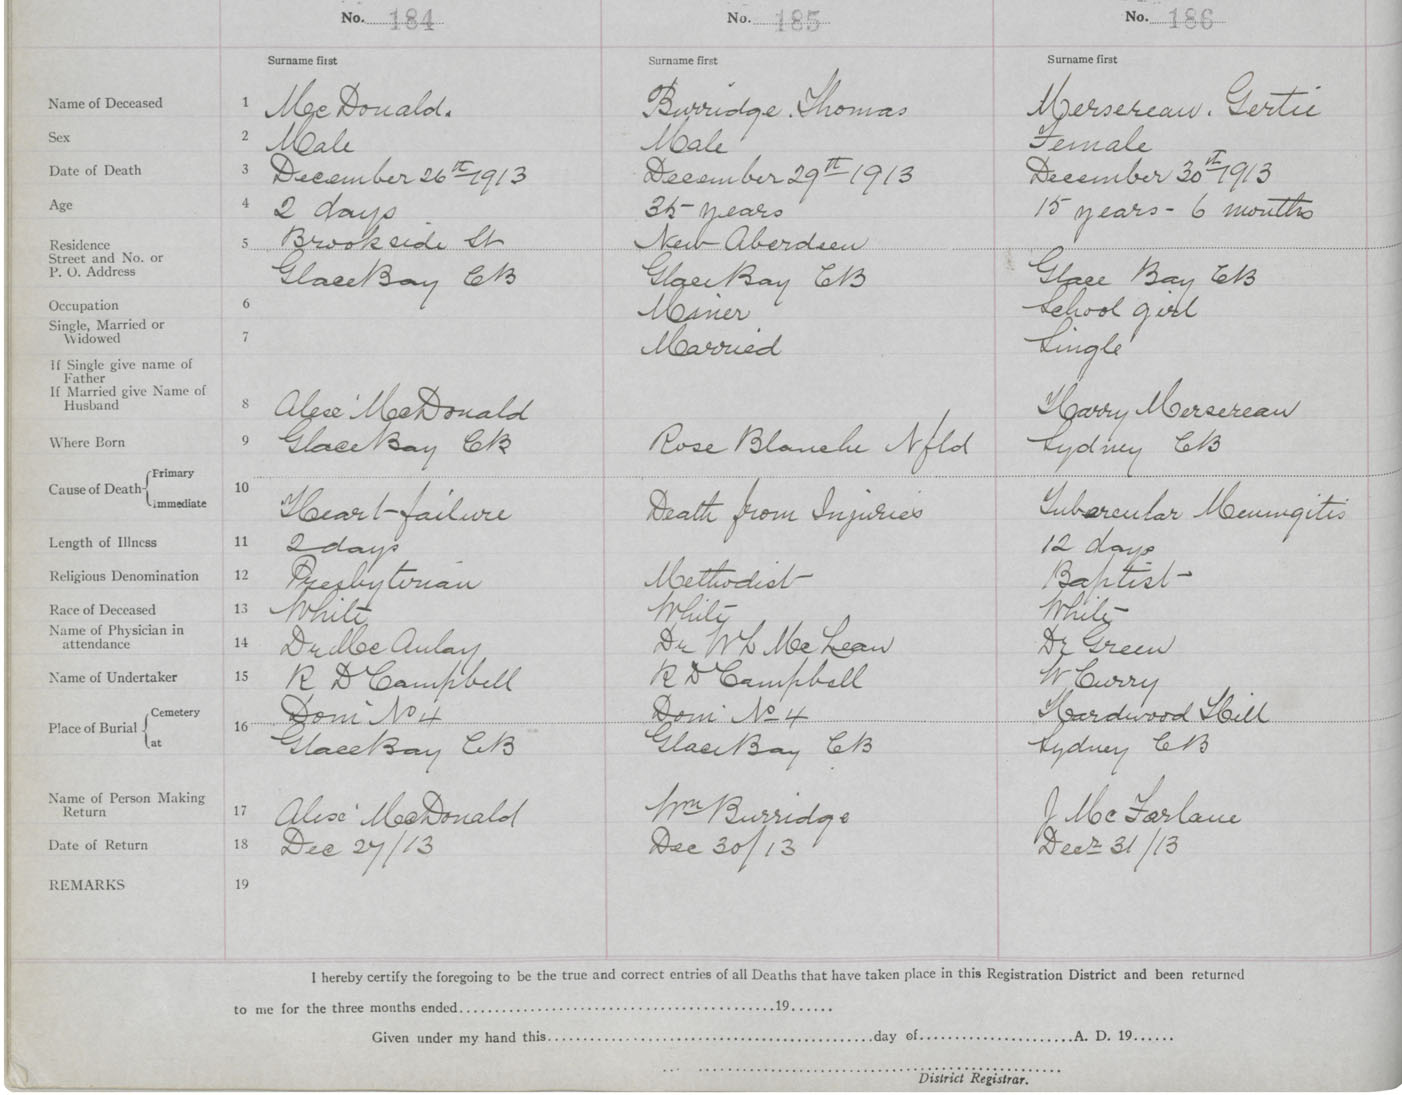 No. 184 No. 185 No. 186
Surname first Surname first Surname first
Name of Deceased 1 McDonald. Burridge. Thomas Mersereau. Gertie
Sex 2 Male Male Female
Date of Death 3 December 26th 1913 December 29th 1913 December 30th 1913
Age 4 2 days 35 years 15 years - 6 months
Residence 5 Brookside St New Aberdeen
Street and No. or
P. O. Address Glace Bay CB Glace Bay CB Glace Bay CB
Occupation 6 Miner School girl
Single, Married or
Widowed 7 Married Single
If Single give name of
Father
If Married give Name of
Husband 8 Alex' McDonald Harry Mersereau
Where Born 9 Glace Bay CB Rose Blanche Nfld Sydney CB
Cause of Death Primary
10
Immediate Heart failure Death from Injuries Tubercular Meningitis
Length of Illness 11 2 days 12 days
Religious Denomination 12 Presbyterian Methodist Baptist
Race of Deceased 13 White White White
Name of Physician in
attendance 14 Dr McAulay Dr WL McLean Dr Green
Name of Undertaker 15 R D Campbell R D Campbell W Curry
Place of Burial Cemetery 16 Dom' No 4 Dom' No 4 Hardwood Hill
at Glace Bay CB Glace Bay CB Sydney CB
Name of Person Making
Return 17 Alex' McDonald Wm Burridge J McFarlane
Date of Return 18 Dec 27/13 Dec 30/13 Decr 31/13
REMARKS 19
I hereby certify the foregoing to be the true and correct entries of all Deaths that have taken place in this Registration District and been returned
to me for the three months ended..........19......
Given under my hand this..........day of..........A. D. 19......
District Registrar.